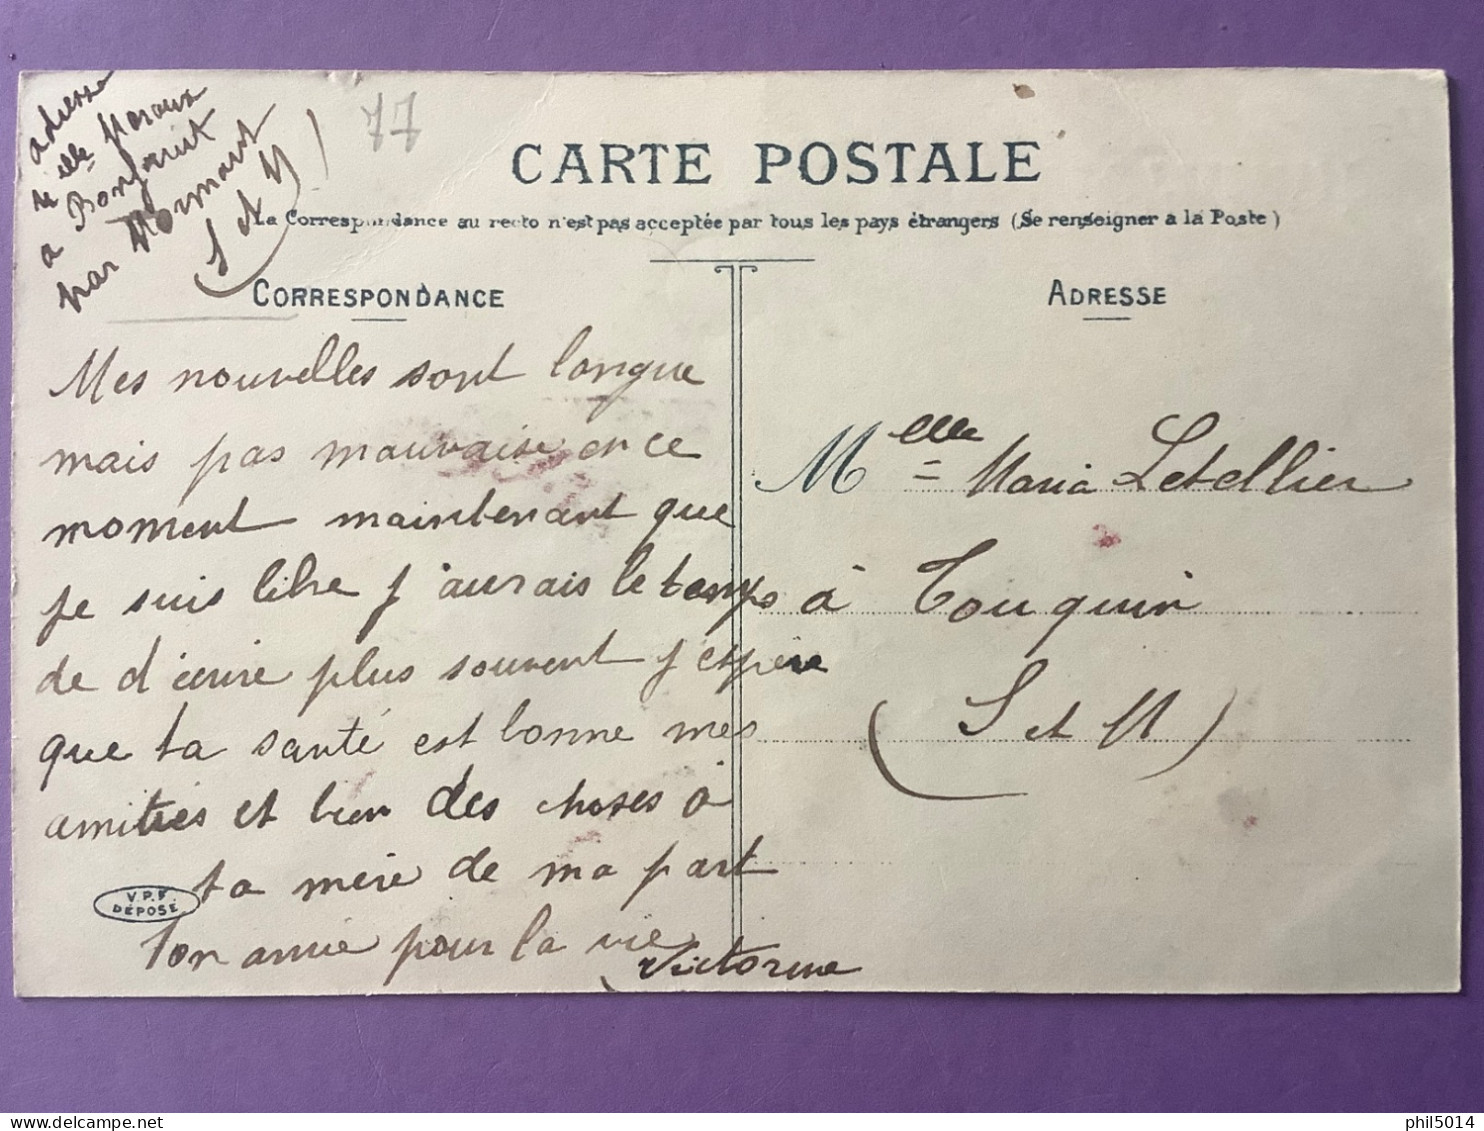 adresse
Melle Moraux
a Bonfruit
par Mormant
S et M
77
CARTE POSTALE
La Correspondance au recto n'est pas acceptée par tous les pays étrangers (Se renseigner a la Poste)
CORRESPONDANCE
Mes nouvelles sont longue
mais pas mauvaise en ce
moment maintenant que
je suis libre j'aurais le temps
de d'écrire plus souvent j'espère
que ta santé est bonne mes
amitiés et bien des choses à
ta mère de ma part
Ton amie pour la vie
Victorine
V.P.F.
DÉPOSÉ
ADRESSE
Melle Maria Letellier
à Touquin
(S et M)
phil5014